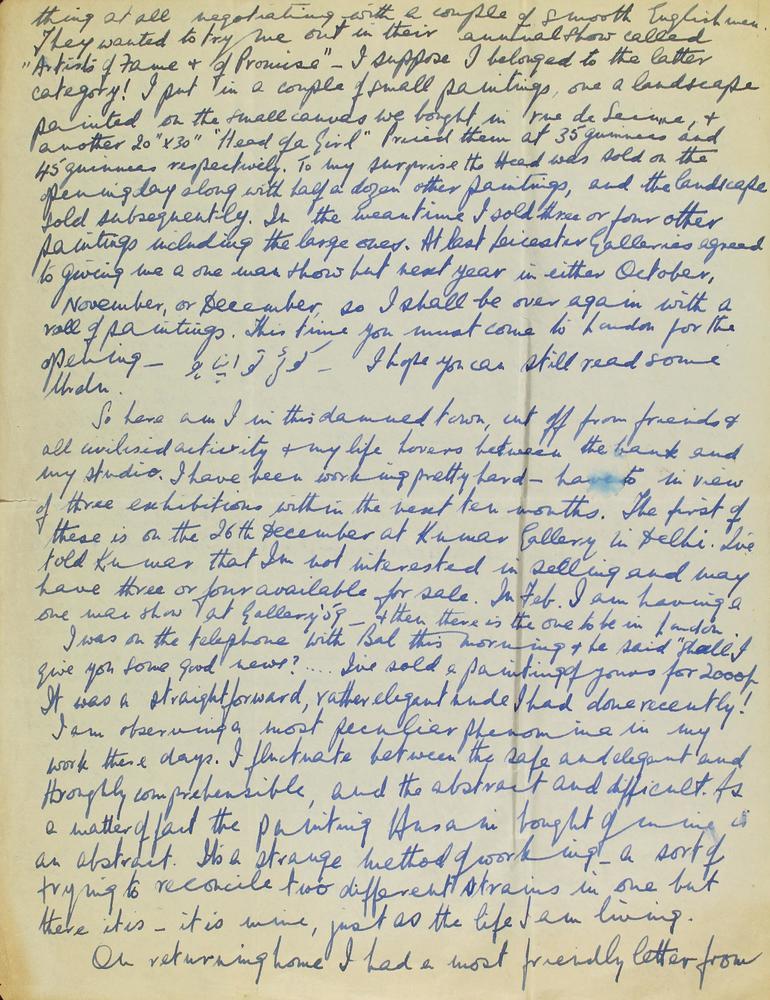 thing at all negotiating with a couple of smooth Englishmen.
They wanted to try me out in their annual show called
"Artists of Fame & of Promise" – I suppose I belonged to the latter
category! I put in a couple of small paintings, one a landscape
painted on the small canvas we bought in rue de Seine, &
another 20"x30" "Head of a Girl" Priced them at 35 guineas and
45 guineas respectively. To my surprise the Head was sold on the
opening day along with half a dozen other paintings, and the landscape
sold subsequently. In the meantime I sold three or four other
paintings including the large ones. At last Leicester Galleries agreed
to giving me a one man show but next year in either October,
November, or December, so I shall be over again with a
roll of paintings. This time you must come to London for the
opening – – I hope you can still read some
Urdu.
So here am I in this damned town, cut off from friends &
all civilised activity & my life hovers between the bank and
my studio. I have been working pretty hard – have to in view
of three exhibitions within the next ten months. The first of
these is on the 26th December at Kumar Gallery in Delhi. I've
told Kumar that I'm not interested in selling and may
have three or four available for sale. In Feb. I am having a
one man show at Gallery '59 – & then there is the one to be in London.
I was on the telephone with Bal this morning & he said "Shall I
give you some good news? .... I've sold a painting of yours for 2000/-
It was a straightforward, rather elegant nude I had done recently!
I am observing a most peculiar phenomina in my
work these days. I fluctuate between the safe and elegant and
throghly comprehensible, and the abstract and difficult. As
a matter of fact the painting Husain bought of mine is
an abstract. Its a strange method of working – a sort of
trying to reconcile two different strains in one but
there it is – it is mine, just as the life I am living.
On returning home I had a most friendly letter from